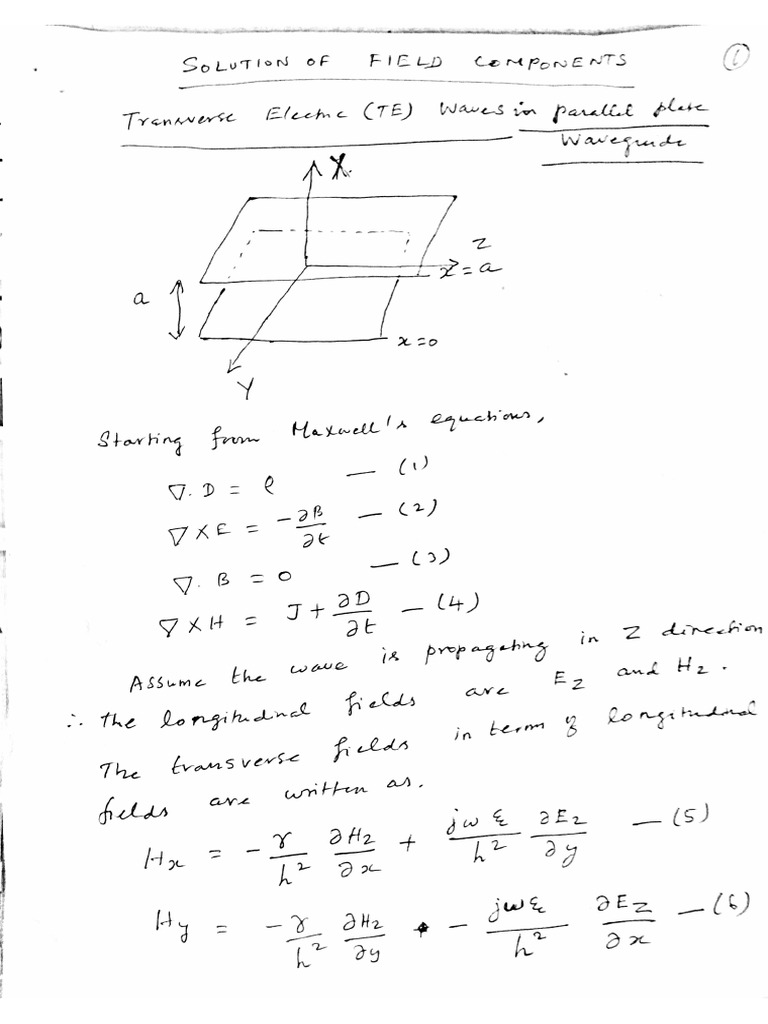 SOLUTION OF FIELD COMPONENTS
①
Transverse Electric (TE) Waves in parallel plate
Waveguide
X
Z
x = a
a
x = 0
Y
Starting from Maxwell's equations,
∇. D = ρ — (1)
∇ X E = -∂B/∂t — (2)
∇. B = 0 — (3)
∇ X H = J + ∂D/∂t — (4)
Assume the wave is propagating in Z direction
∴ the longitudnal fields are Ez and Hz.
The transverse fields in term of longitudnal
fields are written as.
Hx = - γ/h² ∂Hz/∂x + jωε/h² ∂Ez/∂y — (5)
Hy = - γ/h² ∂Hz/∂y - jωε/h² ∂Ez/∂x — (6)